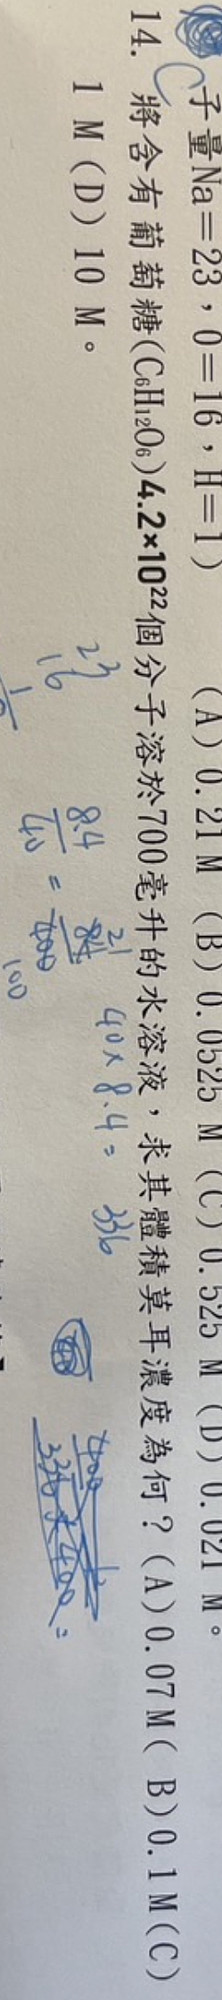 子量Na=23，O=16，H=1） (A) 0.21 M (B) 0.0525 M (C) 0.525 M (D) 0.021 M。
C
14. 將含有葡萄糖(C₆H₁₂O₆)4.2×10²²個分子溶於700毫升的水溶液，求其體積莫耳濃度為何？(A)0.07M( B)0.1M(C)
1 M(D)10 M。
23
16
8.4/40 = 84/400
21
100
40×8.4= 336
400
336×400=